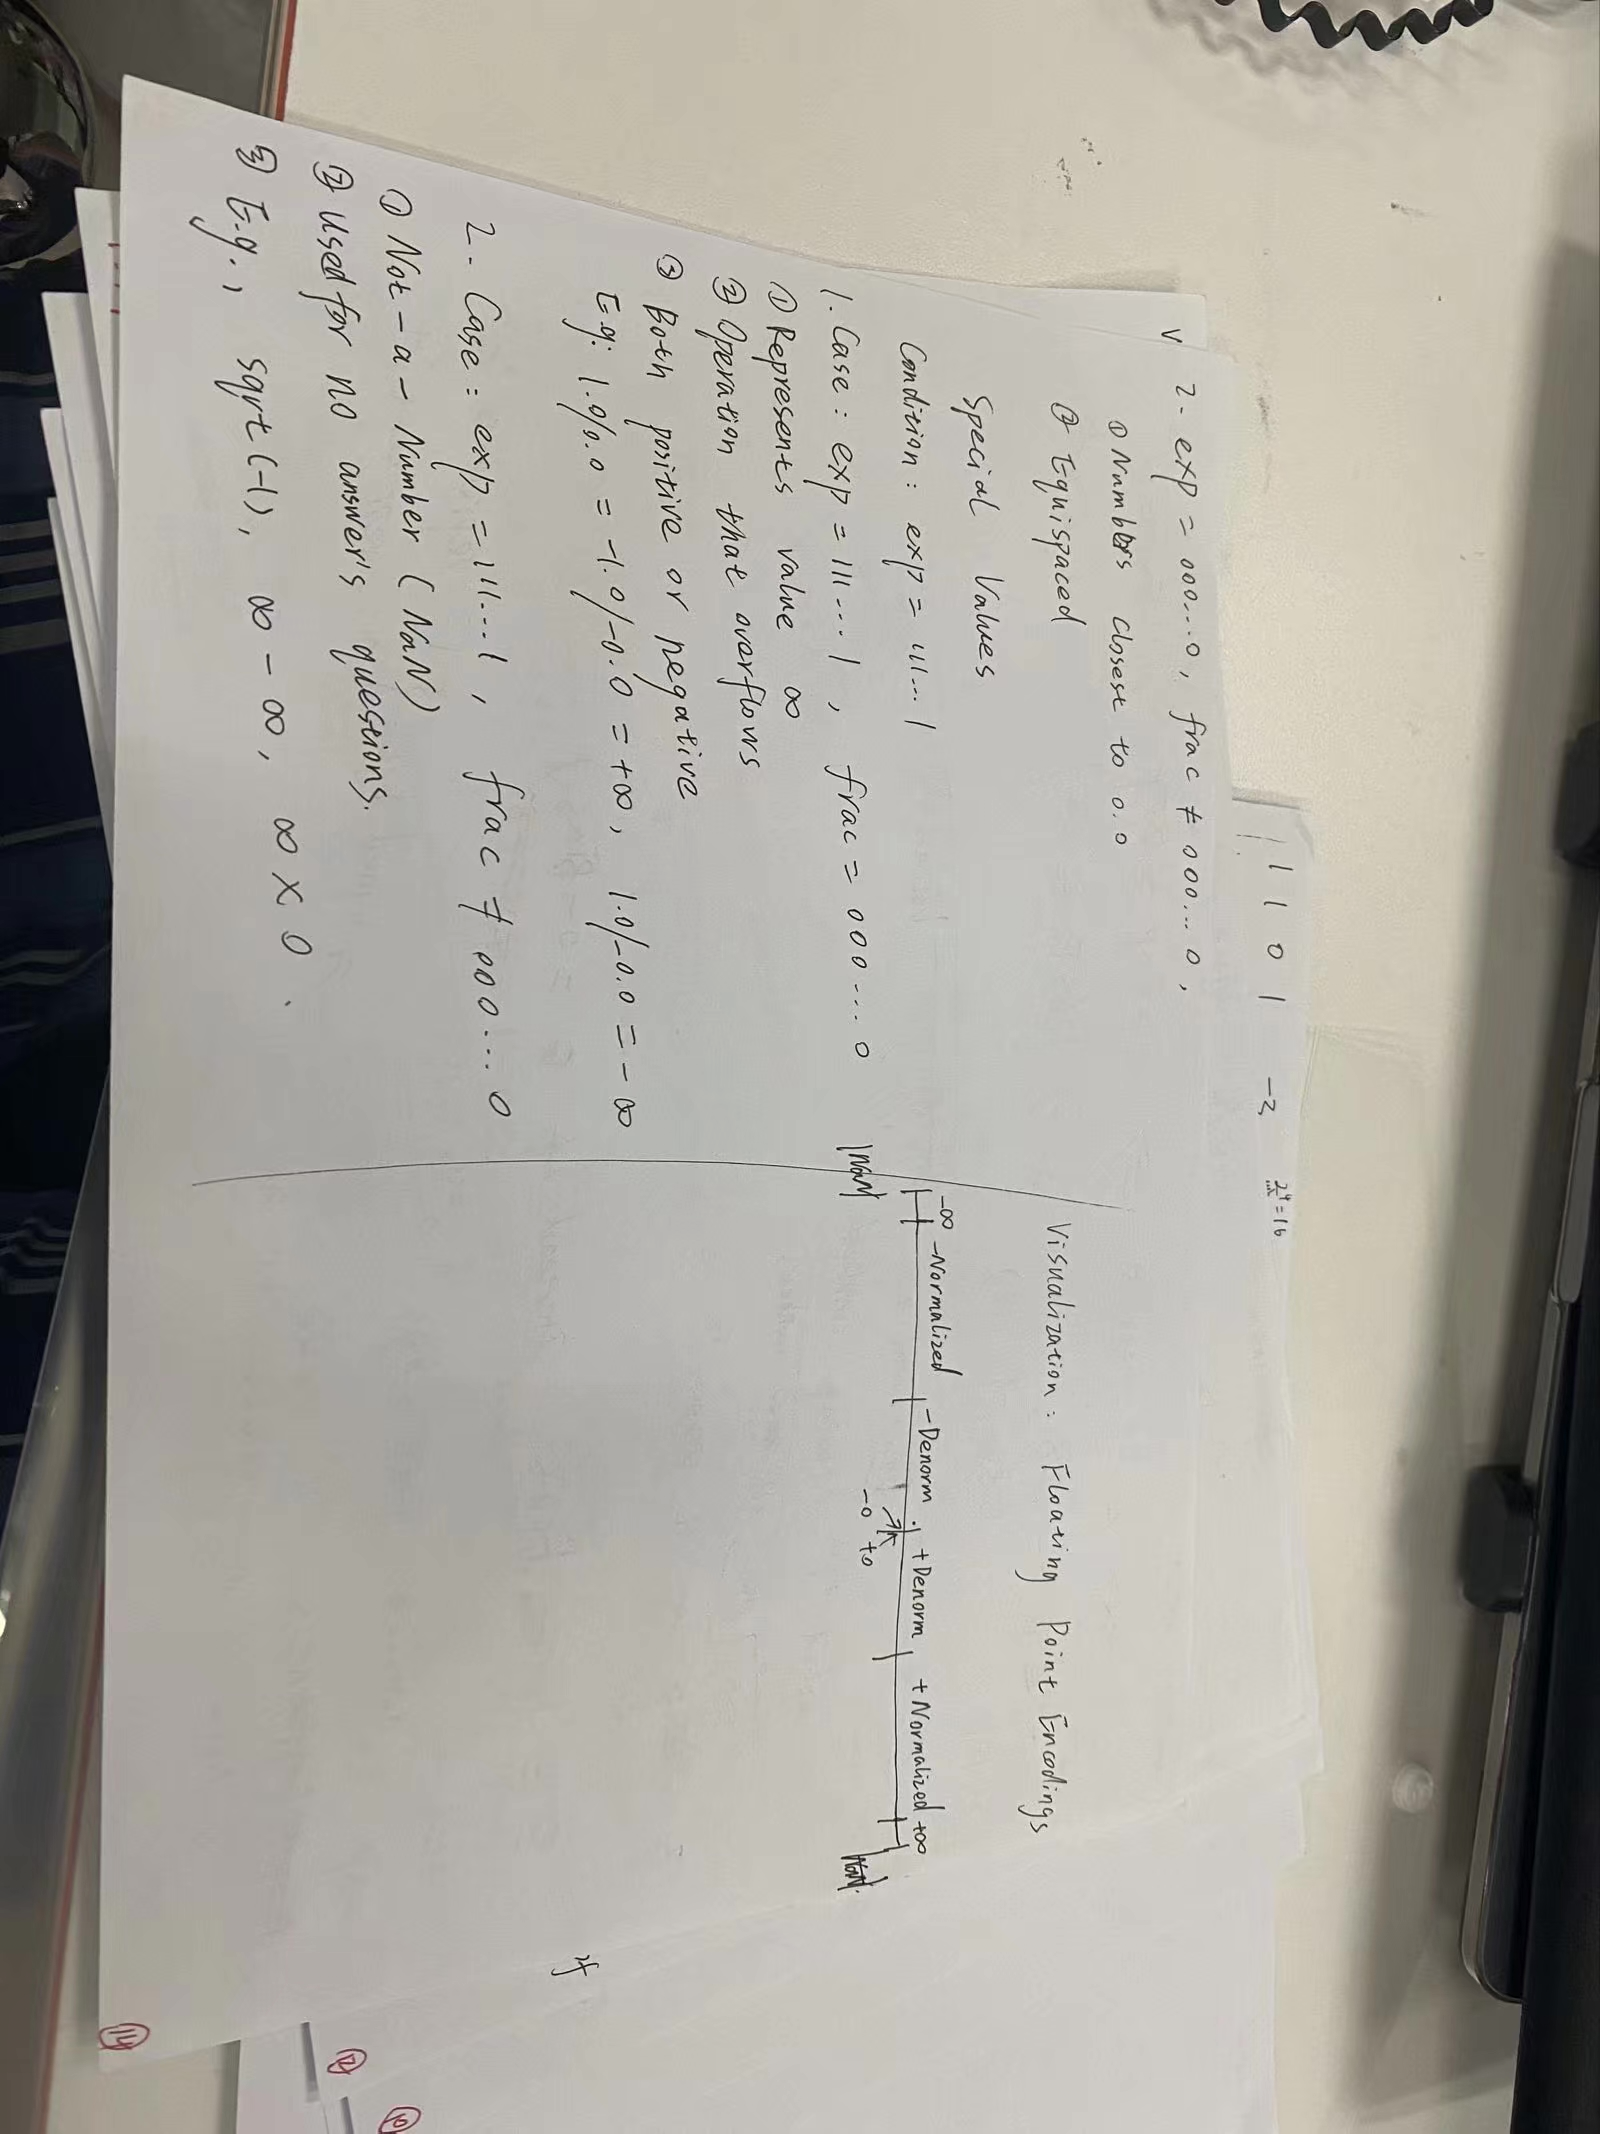 1 1 0 1 -3
2⁴=16
v
2. exp = 000...0, frac ≠ 000...0,
① Numbers closest to 0.0
② Equispaced
Special Values
Condition: exp = 111...1
1. Case: exp = 111...1, frac = 000...0
① Represents value ∞
② Operation that overflows
③ Both positive or negative
E.g: 1.0/0.0 = -1.0/-0.0 = +∞, 1.0/-0.0 = -∞
2. Case: exp = 111...1, frac ≠ 000...0
① Not-a-Number (NaN)
② Used for no answer's questions.
③ E.g., sqrt(-1), ∞-∞, ∞×0.
Visualization: Floating Point Encodings
-∞ -Normalized -Denorm +Denorm +Normalized +∞
NaN -0 +0 NaN
14
12
10